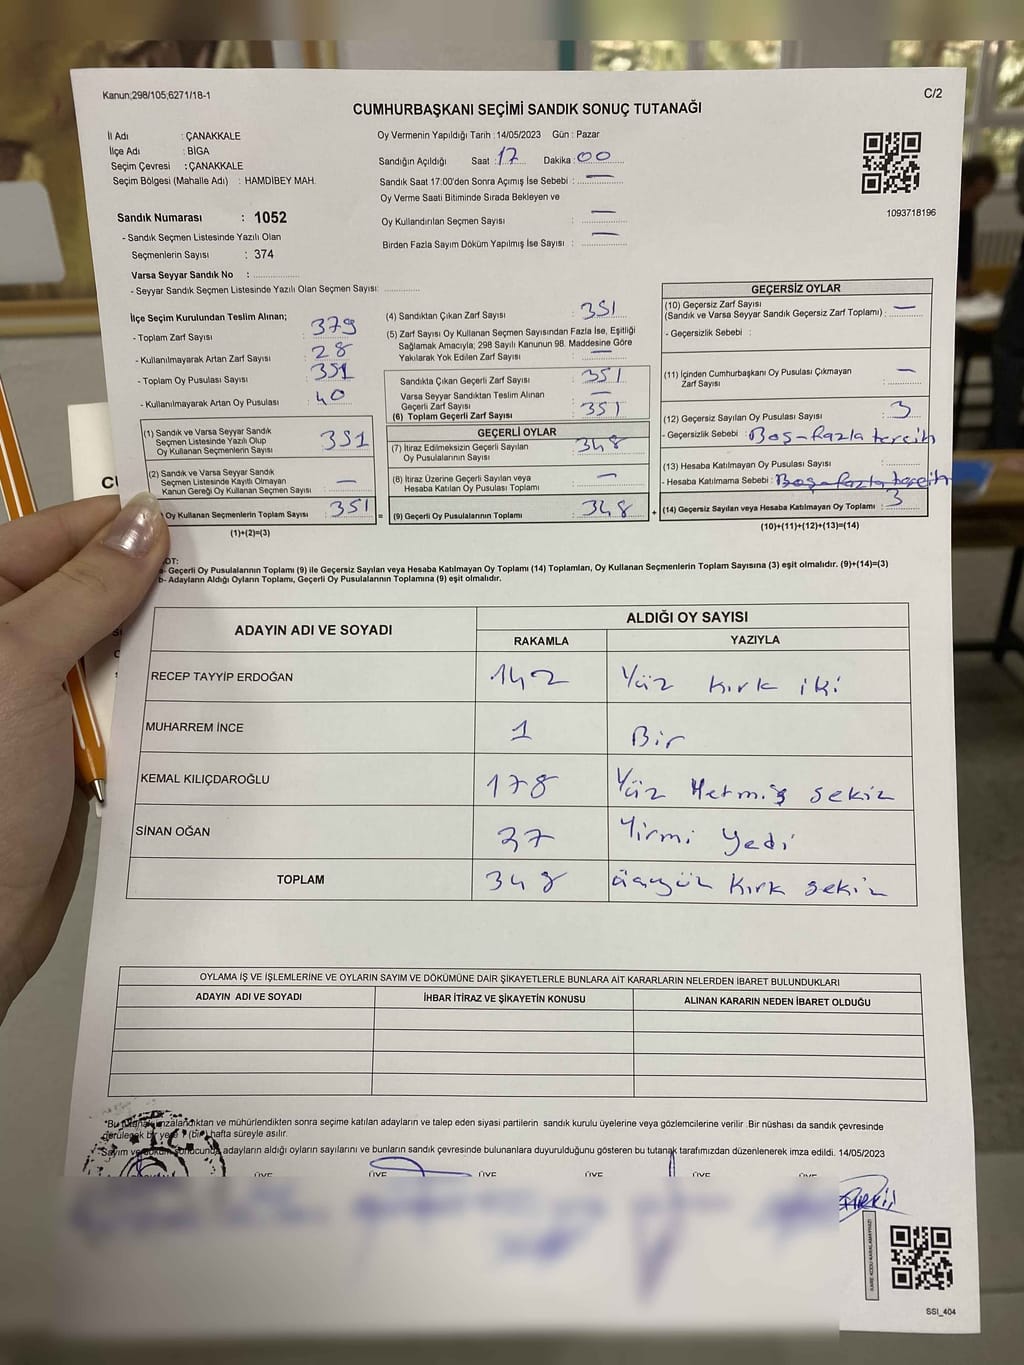 Kanun;298/105,6271/18-1
C/2
CUMHURBAŞKANI SEÇİMİ SANDIK SONUÇ TUTANAĞI
İl Adı : ÇANAKKALE
İlçe Adı : BİGA
Seçim Çevresi : ÇANAKKALE
Seçim Bölgesi (Mahalle Adı) : HAMDİBEY MAH.
Oy Vermenin Yapıldığı Tarih :14/05/2023 Gün : Pazar
Sandığın Açıldığı Saat : 17 Dakika : 00
Sandık Saat 17:00'den Sonra Açımış İse Sebebi : —
Oy Verme Saati Bitiminde Sırada Bekleyen ve
Oy Kullandırılan Seçmen Sayısı : —
Birden Fazla Sayım Döküm Yapılmış İse Sayısı : —
1093718196
Sandık Numarası : 1052
- Sandık Seçmen Listesinde Yazılı Olan
Seçmenlerin Sayısı : 374
Varsa Seyyar Sandık No : ..............
- Seyyar Sandık Seçmen Listesinde Yazılı Olan Seçmen Sayısı: ............
İlçe Seçim Kurulundan Teslim Alınan;
- Toplam Zarf Sayısı : 379
- Kullanılmayarak Artan Zarf Sayısı : 28
- Toplam Oy Pusulası Sayısı : 351
- Kullanılmayarak Artan Oy Pusulası : 40
(1) Sandık ve Varsa Seyyar Sandık
Seçmen Listesinde Yazılı Olup
Oy Kullanan Seçmenlerin Sayısı : 351
(2) Sandık ve Varsa Seyyar Sandık
Seçmen Listesinde Kayıtlı Olmayan
Kanun Gereği Oy Kullanan Seçmen Sayısı : —
Oy Kullanan Seçmenlerin Toplam Sayısı : 351 =
(1)+(2)=(3)
(4) Sandıktan Çıkan Zarf Sayısı : 351
(5) Zarf Sayısı Oy Kullanan Seçmen Sayısından Fazla İse, Eşitliği
Sağlamak Amacıyla; 298 Sayılı Kanunun 98. Maddesine Göre
Yakılarak Yok Edilen Zarf Sayısı : —
Sandıkta Çıkan Geçerli Zarf Sayısı : 351
Varsa Seyyar Sandıktan Teslim Alınan
Geçerli Zarf Sayısı : —
(6) Toplam Geçerli Zarf Sayısı : 351
GEÇERLİ OYLAR
(7) İtiraz Edilmeksizin Geçerli Sayılan
Oy Pusulalarının Sayısı : 348
(8) İtiraz Üzerine Geçerli Sayılan veya
Hesaba Katılan Oy Pusulaları Toplamı : —
(9) Geçerli Oy Pusulalarının Toplamı : 348 +
GEÇERSİZ OYLAR
(10) Geçersiz Zarf Sayısı
(Sandık ve Varsa Seyyar Sandık Geçersiz Zarf Toplamı) : —
- Geçersizlik Sebebi :
(11) İçinden Cumhurbaşkanı Oy Pusulası Çıkmayan
Zarf Sayısı : —
(12) Geçersiz Sayılan Oy Pusulası Sayısı : 3
- Geçersizlik Sebebi : Boş-fazla tercih
(13) Hesaba Katılmayan Oy Pusulası Sayısı :
- Hesaba Katılmama Sebebi : Boş-fazla tercih
(14) Geçersiz Sayılan veya Hesaba Katılmayan Oy Toplamı : 3
(10)+(11)+(12)+(13)=(14)
OT:
a- Geçerli Oy Pusulalarının Toplamı (9) ile Geçersiz Sayılan veya Hesaba Katılmayan Oy Toplamı (14) Toplamları, Oy Kullanan Seçmenlerin Toplam Sayısına (3) eşit olmalıdır. (9)+(14)=(3)
b- Adayların Aldığı Oyların Toplamı, Geçerli Oy Pusulalarının Toplamına (9) eşit olmalıdır.
ADAYIN ADI VE SOYADI
ALDIĞI OY SAYISI
RAKAMLA YAZIYLA
RECEP TAYYİP ERDOĞAN 142 Yüz kırk iki
MUHARREM İNCE 1 Bir
KEMAL KILIÇDAROĞLU 178 Yüz Yetmiş sekiz
SİNAN OĞAN 27 Yirmi yedi
TOPLAM 348 üçyüz kırk sekiz
OYLAMA İŞ VE İŞLEMLERİNE VE OYLARIN SAYIM VE DÖKÜMÜNE DAİR ŞİKAYETLERLE BUNLARA AİT KARARLARIN NELERDEN İBARET BULUNDUKLARI
ADAYIN ADI VE SOYADI İHBAR İTİRAZ VE ŞİKAYETİN KONUSU ALINAN KARARIN NEDEN İBARET OLDUĞU
"Bu tutanak imzalandıktan ve mühürlendikten sonra seçime katılan adayların ve talep eden siyasi partilerin sandık kurulu üyelerine veya gözlemcilerine verilir .Bir nüshası da sandık çevresinde
görülecek bir yere 1 (bir) hafta süreyle asılır.
Sayım ve döküm sonucunda adayların aldığı oyların sayılarını ve bunların sandık çevresinde bulunanlara duyurulduğunu gösteren bu tutanak tarafımızdan düzenlenerek imza edildi. 14/05/2023
ÜYE ÜYE ÜYE ÜYE ÜYE ÜYE
T.C.
SSI_404